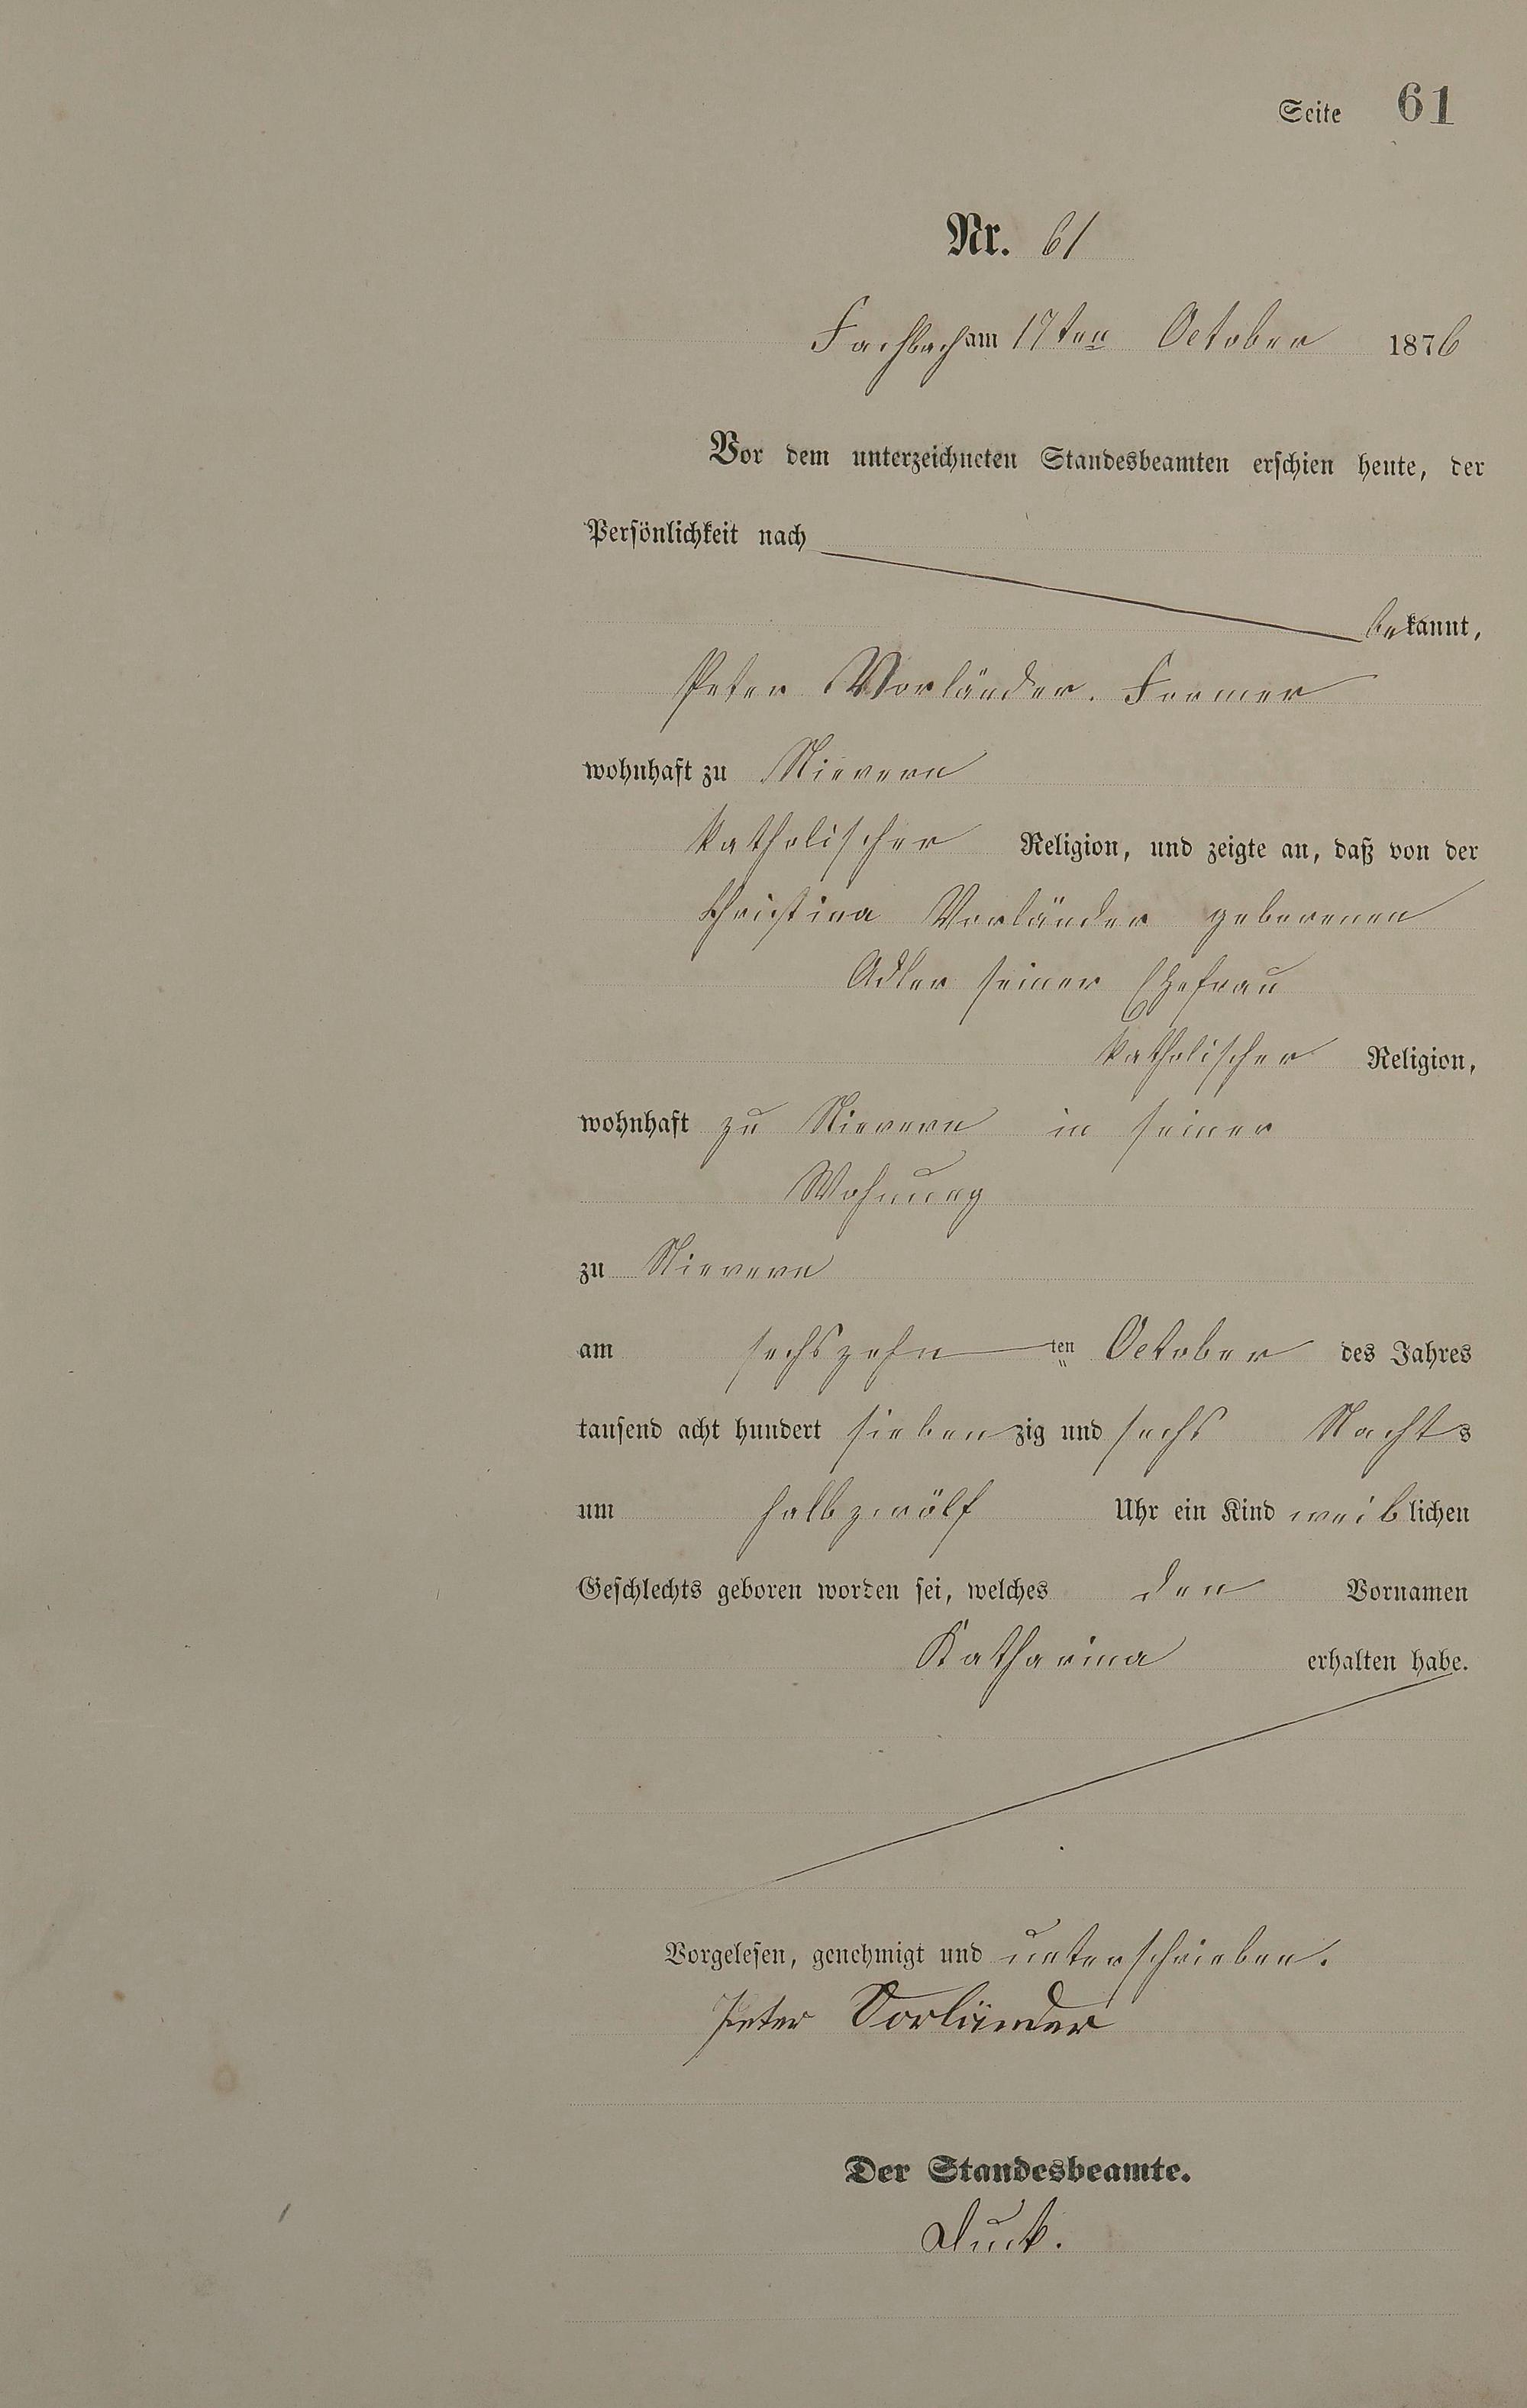 Seite 61
Nr. 61
Fachbach am 17ten October 1876
Vor dem unterzeichneten Standesbeamten erschien heute, der
Persönlichkeit nach
bekannt,
Peter Vorländer. Former
wohnhaft zu Nievern
katholischer Religion, und zeigte an, daß von der
Christina Vorländer geborenen
Adler seiner Ehefrau
katholischer Religion,
wohnhaft zu Nievern in seiner
Wohnung
zu Nievern
am sechszehn ten October des Jahres
tausend acht hundert siebenzig und sechs Nachts
um halb zwölf Uhr ein Kind weiblichen
Geschlechts geboren worden sei, welches den Vornamen
Katharina erhalten habe.
Vorgelesen, genehmigt und unterschrieben.
Peter Vorländer
Der Standesbeamte.